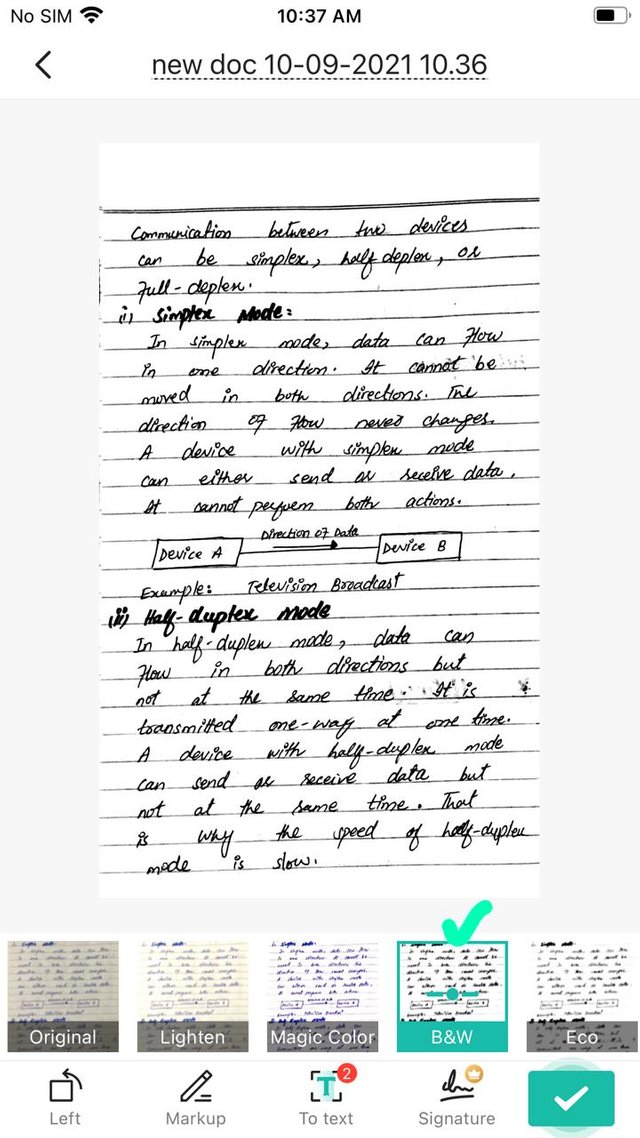 No SIM 10:37 AM
new doc 10-09-2021 10.36
Communication between two devices
can be simplex, half deplex, or
Full-deplex.
(i) Simplex Mode:
In simplex mode, data can flow
in one direction. It cannot be
moved in both directions. The
direction of flow never changes.
A device with simplex mode
can either send or receive data.
It cannot perform both actions.
Direction of Data
Device A Device B
Example: Television Broadcast
(ii) Half-duplex Mode
In half-duplex mode, data can
flow in both directions but
not at the same time. It is
transmitted one-way at one time.
A device with half-duplex mode
can send or receive data but
not at the same time. That
is why the speed of half-duplex
mode is slow.
Original Lighten Magic Color B&W Eco
T 2
Left Markup To text Signature